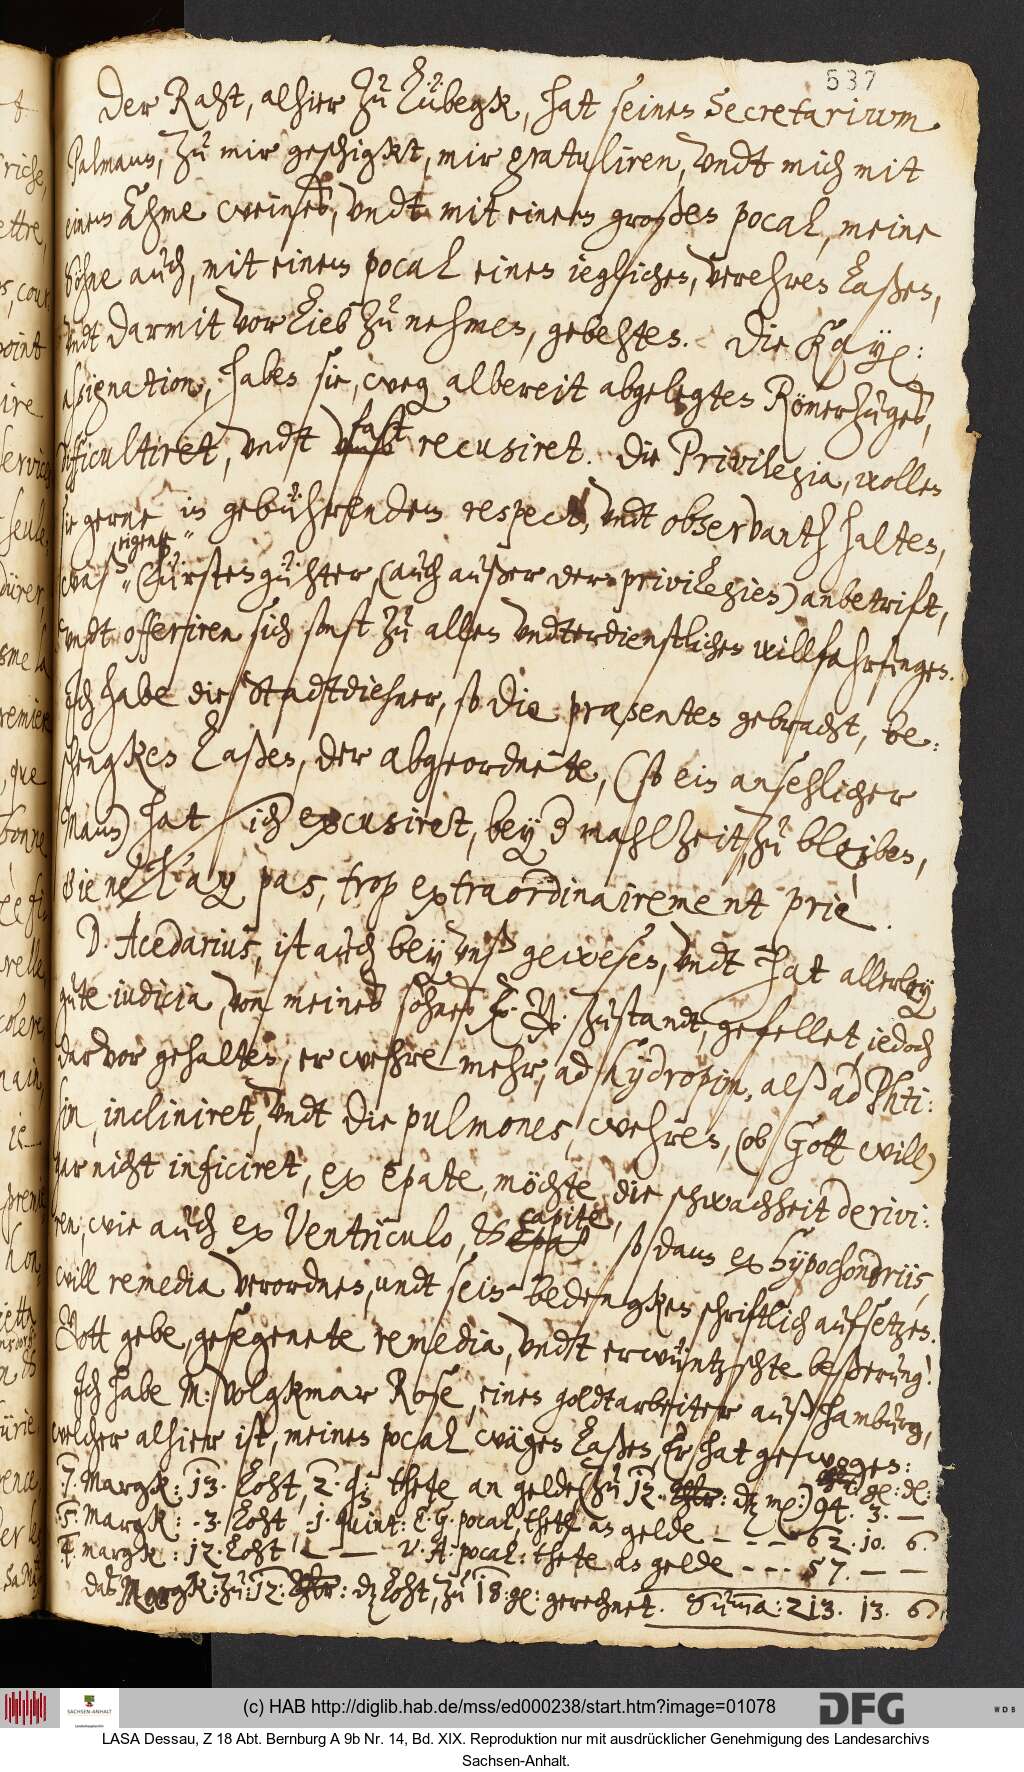 537
Der Raht, alhier zu Lübegk, hat seinen Secretarium
Palman, zu mir geschigkt, mir gratuliren, vndt mich mit
einem Ahme weinß, vndt mit einem großen pocal, meine
Söhne auch, mit einem pocal einen ieglichen, verehren laßen,
vndt darmit vor lieb zu nehmen, gebehten. Die Kay:
assignation, haben sie, weg albereit abgelegten Römerzuges,
difficultiret, vndt fast recusiret. Die Privilegia, wollen
sie gerne in gebührendem respect, vndt observantz halten,
waß eigene Fürstengühter, (auch außer der privilegien) anbetrift,
vndt offeriren sich sonst zu allen vndterdienstlichen willfahrungen.
Ich habe die Stadtdiehner, so die præsenten gebracht, be-
schengken laßen, der abgeordnete, (so ein ansehlicher
Mann) hat sich excusiret, bey d mahlzeit, zu bleiben,
Bien que ie ne l'ay pas, trop extraordinairement prié.
D. Acedarius, ist auch bey vnß gewesen, vndt hat allerley
gute iudicia, von meines sohns E. A. zustandt, gefellet, iedoch
darvor gehalten, er wehre mehr, ad hydropin, alß ad Phti-
sin, incliniret, vndt die pulmones, wehren, (ob Gott will)
gar nicht inficiret, ex epate, möchte, die schwachheit derivi-
ren, wie auch ex Ventriculo, & capite, so dann ex hypochondriis,
will remedia verordnen, undt sein bedengken schriftlich aufsetzen.
Gott gebe, gesegenete remedia, vndt erwüntzschte beßerung!
Ich habe M: Volgkmar Rose, einen goldtarbeiter auß Hamburg,
welcher alhier ist, meinen pocal wägen laßen, Er hat gewogen:
7. Margk: 13. Loht, 2. q: thete an gelde (zu 12. d m:) 94. 3. —
5. Margk: 3. Loht 1. quint: E. A. pocal, thete an gelde - - - 62. 10. 6.
4. margk: 12. Loht — — V. A. pocal: thete an gelde - - - 57. — —
das Margk: zu: 12: d Loht, zu 18: gl: gerechnet. Summa: 213. 13. 6
(c) HAB http://diglib.hab.de/mss/ed000238/start.htm?image=01078
SACHSEN-ANHALT
DFG
WDB
LASA Dessau, Z 18 Abt. Bernburg A 9b Nr. 14, Bd. XIX. Reproduktion nur mit ausdrücklicher Genehmigung des Landesarchivs
Sachsen-Anhalt.